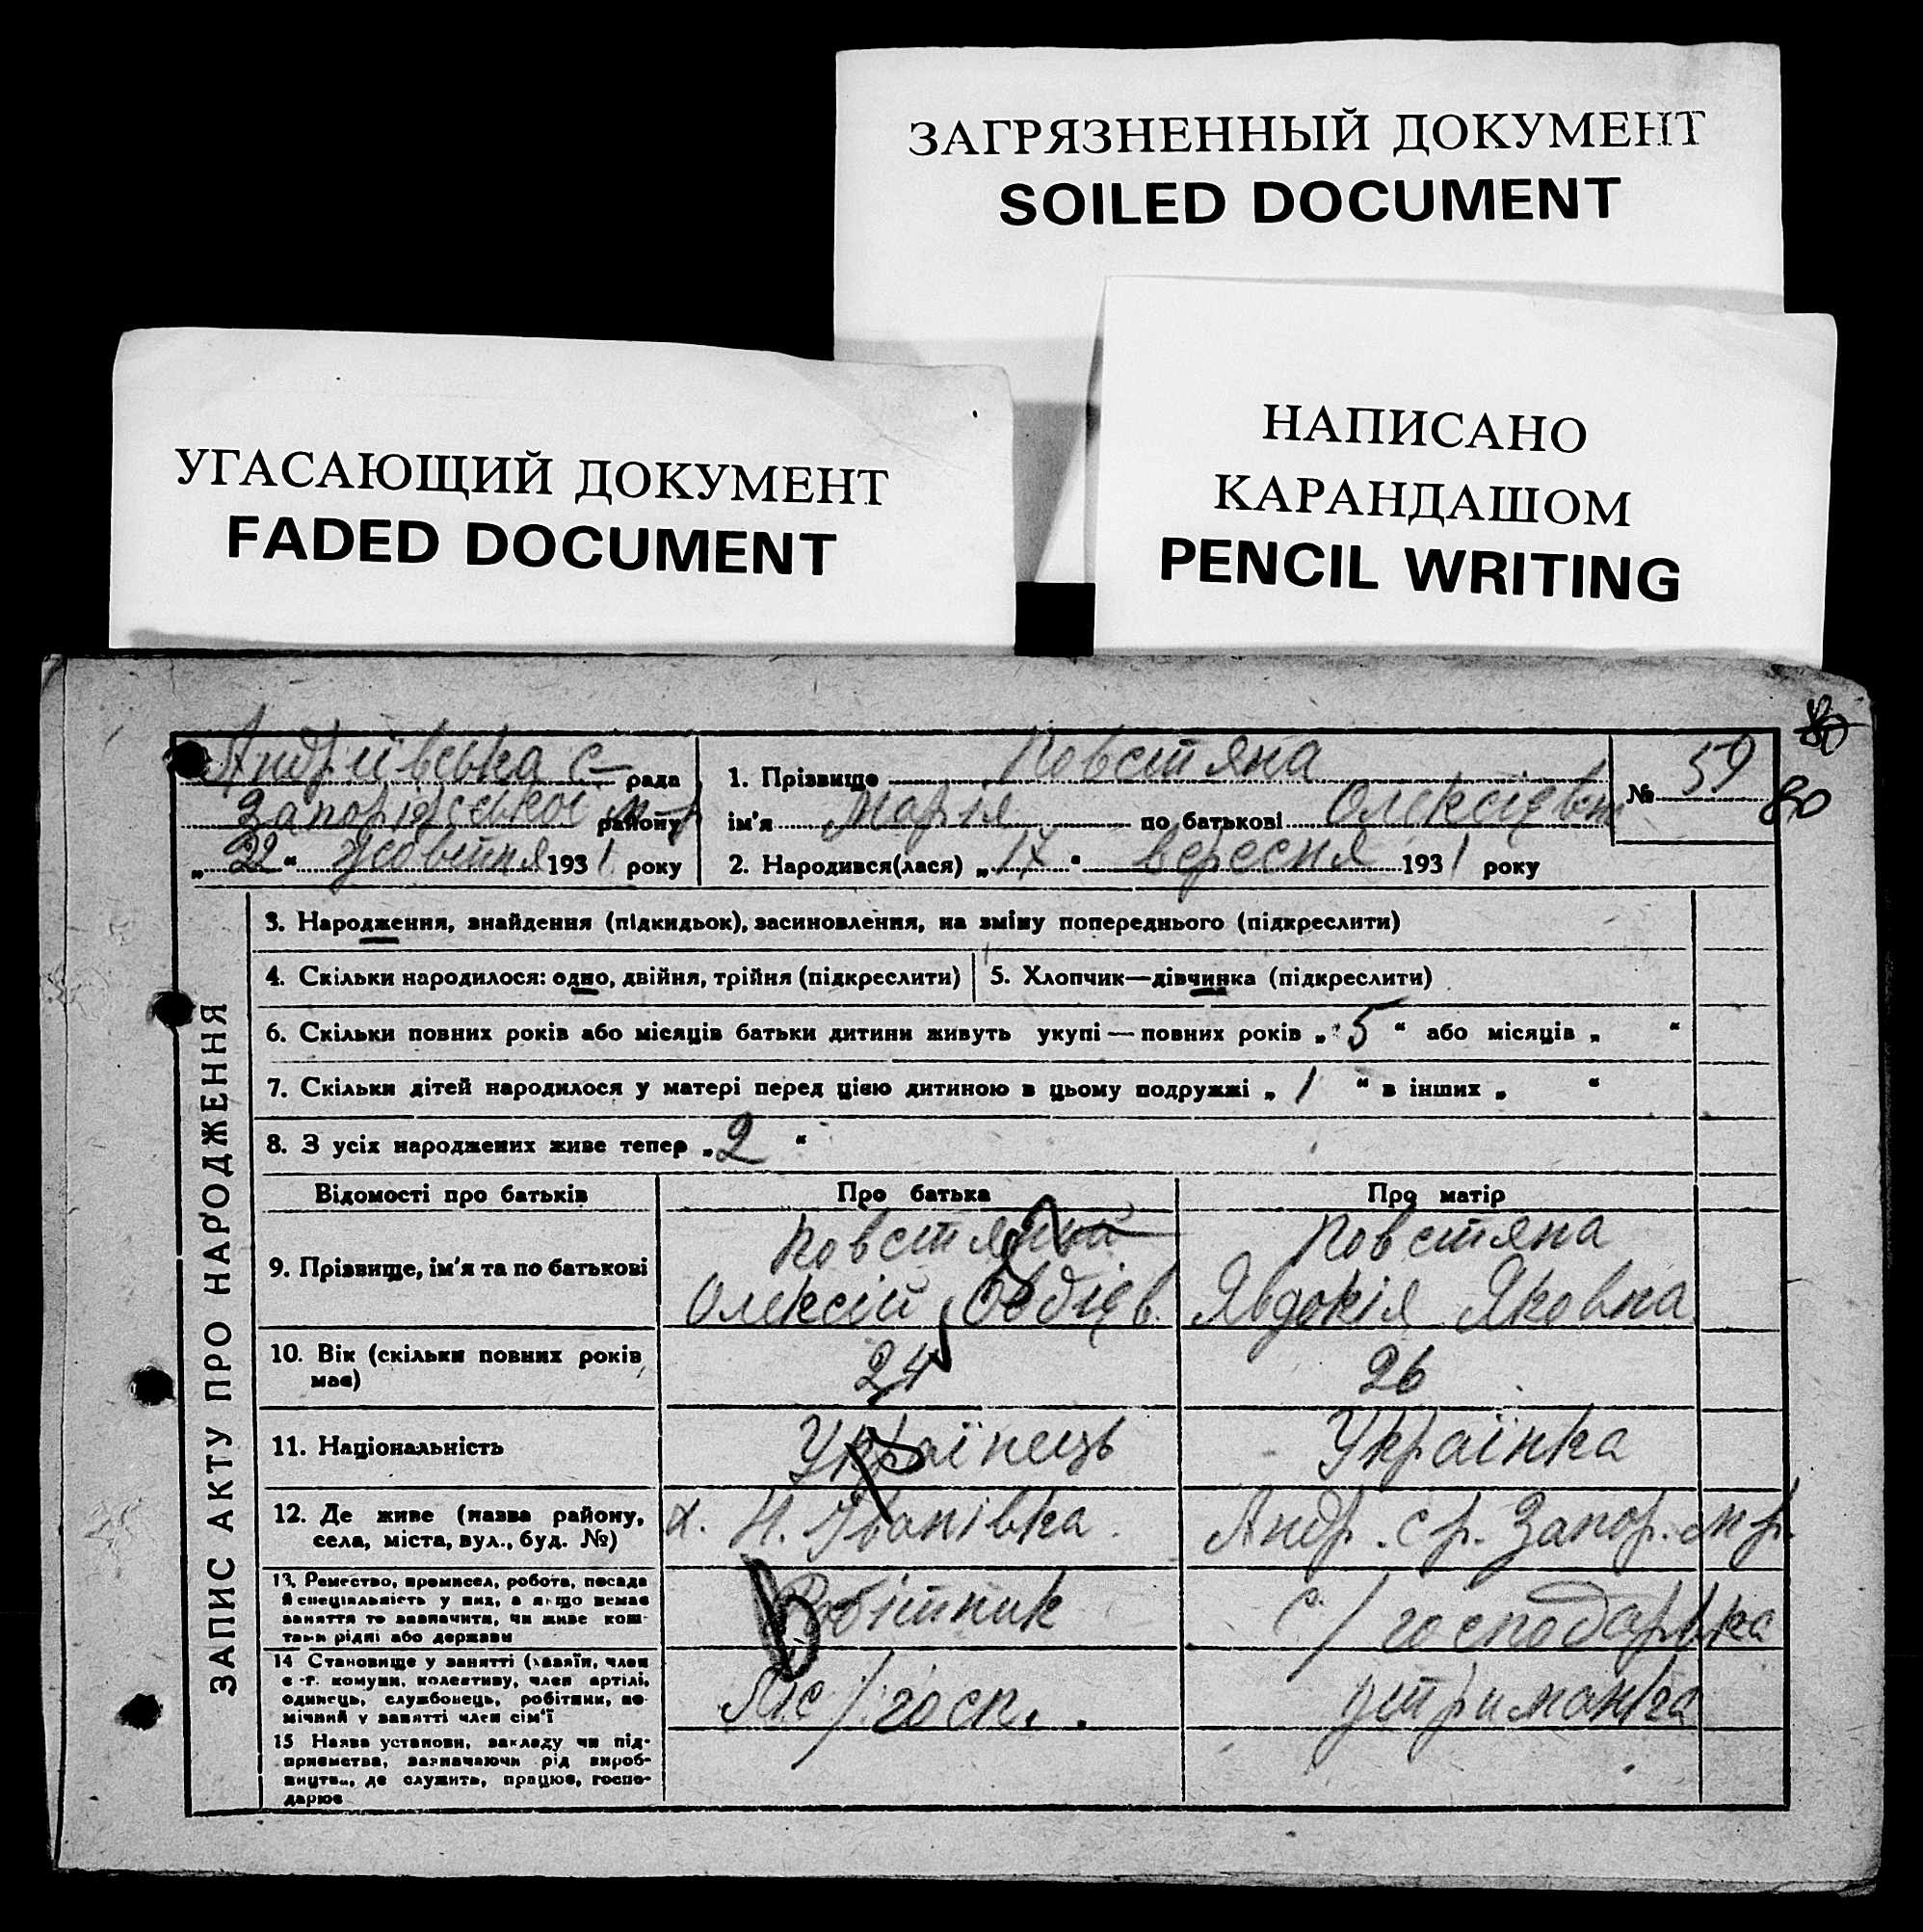 ЗАГРЯЗНЕННЫЙ ДОКУМЕНТ
SOILED DOCUMENT
УГАСАЮЩИЙ ДОКУМЕНТ
FADED DOCUMENT
НАПИСАНО
КАРАНДАШОМ
PENCIL WRITING
80
Андріївська с— рада
Запоріжської м-р району
„22“ жовтня 1931 року
1. Прізвище Повстяна
ім'я Марія по батькові Олексієвн
№ 59
80
2. Народився(лася) „17“ вересня 1931 року
ЗАПИС АКТУ ПРО НАРОДЖЕННЯ
3. Народження, знайдення (підкидьок), засиновлення, на зміну попереднього (підкреслити)
4. Скільки народилося: одно, двійня, трійня (підкреслити)
5. Хлопчик—дівчинка (підкреслити)
6. Скільки повних років або місяців батьки дитини живуть укупі — повних років „5“ або місяців „ “
7. Скільки дітей народилося у матері перед цією дитиною в цьому подружжі „1“ в інших „ “
8. З усіх народжених живе тепер „2“
Відомості про батьків
Про батька
Про матір
9. Прізвище, ім'я та по батькові
Повстяний
Олексій Овдієв.
Повстяна
Явдокія Яковна
10. Вік (скільки повних років має)
24
26
11. Національність
Українець
Українка
12. Де живе (назва району, села, міста, вул., буд. №)
х. Н. Іванівка.
Андр. с р. Запор. м р.
13. Ремество, промисел, робота, посада й спеціяльність у них, а якщо немає заняття то зазначити, чи живе коштами рідні або держави
Робітник
с/господарька
14 Становище у занятті (хазяїн, член с.-г. комуни, колективу, член артілі, одинець, службовець, робітник, помічний у занятті член сім'ї
/госп.
утриманка
15 Назва установи, закладу чи підприємства, зазначаючи рід виробництва, де служить, працює, господарює